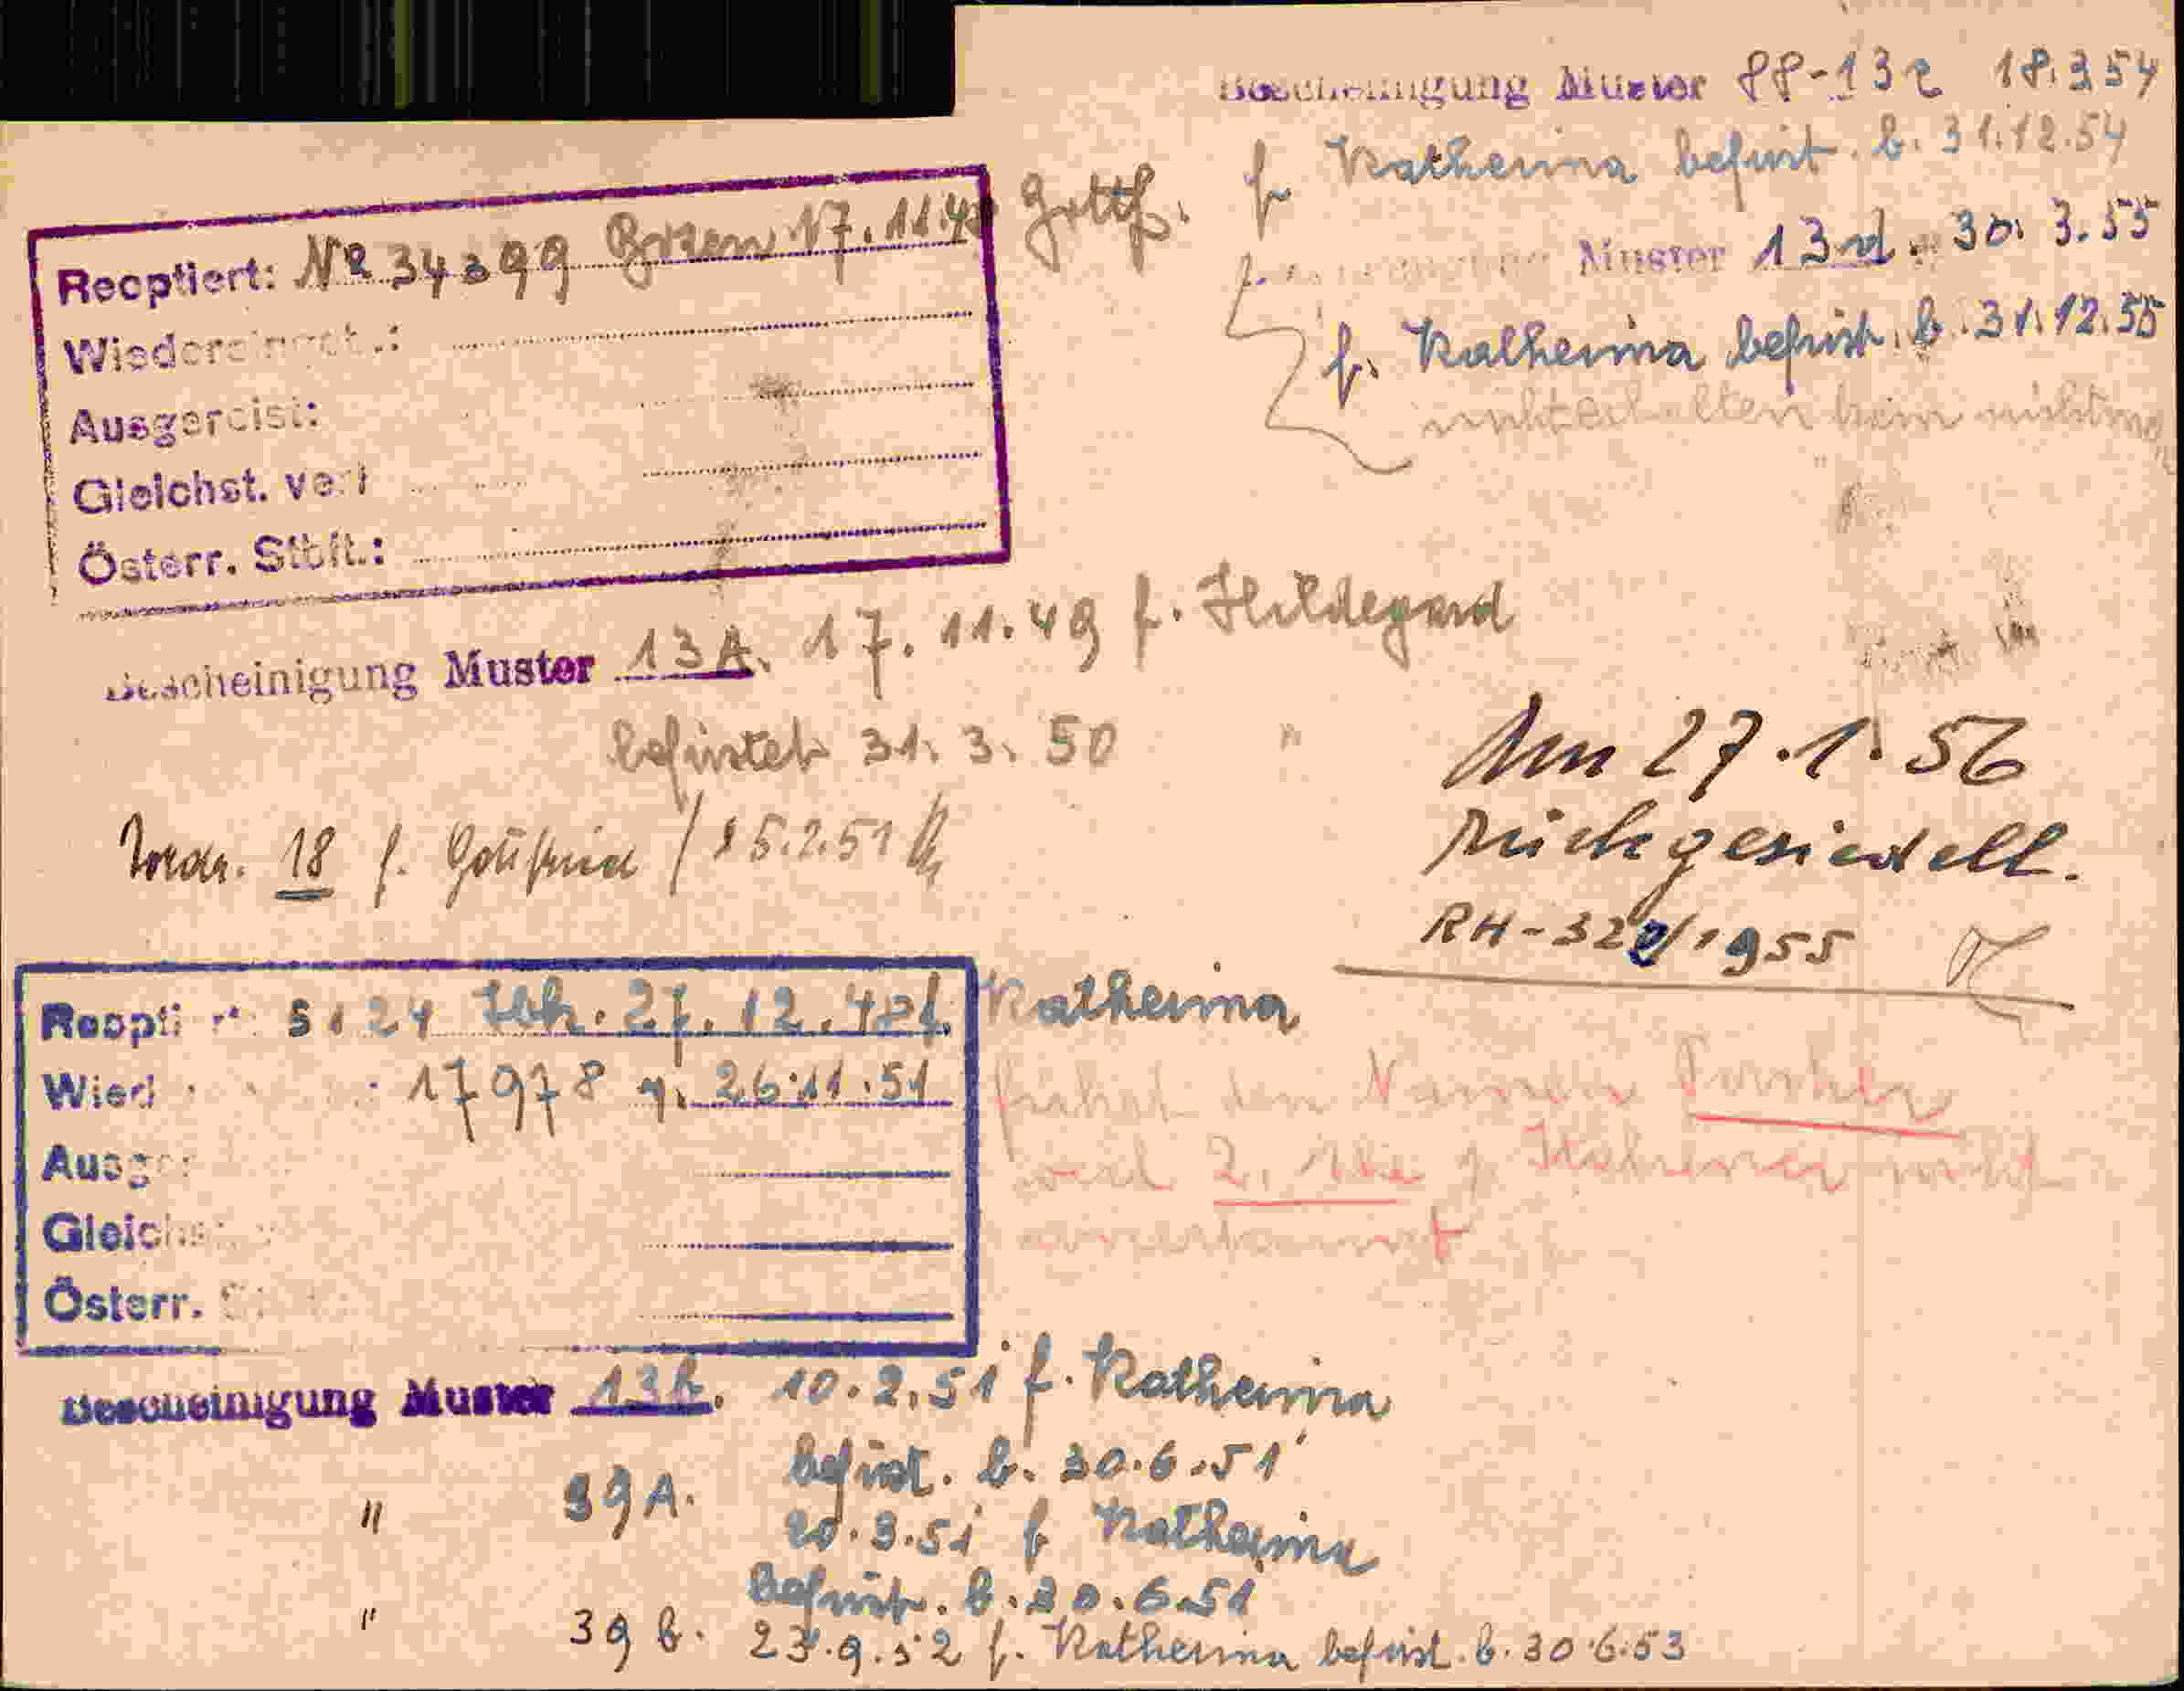 Bescheinigung Muster 88-13e 18.3.54
f. Katherina befrist. b. 31.12.54
Muster 13d. 30. 3.55
f. Katherina befrist. b. 31.12.55
nicht erhalten kein
Reoptiert: No 34399 Bozen 17.11.48 Gottf.
Wiedereingeb.:
Ausgereist:
Gleichst. verl
Österr. Stbft.:
Bescheinigung Muster 13A. 17. 11. 49 f. Hildegard
befristet 31. 3. 50
18 f. Gottfried / 15.2.51
Am 27.1.56
rückgesiedelt.
RH-322/1955
Reopti rt 5124 Ibk. 27. 12. 48 f. Katherina
Wied 17978 v. 26.11.51
führt den Namen
wird 2. Ehe v. Italiener nicht
anerkannt
Ausger
Gleichst
Österr. St
Bescheinigung Muster 13h. 10.2.51 f. Katherina
befrist. b. 30.6.51
" 39A. 20.3.51 f Katherina
befrist. b. 30.6.51
" 39 b. 23.9.52 f. Katherina befrist. b. 30.6.53